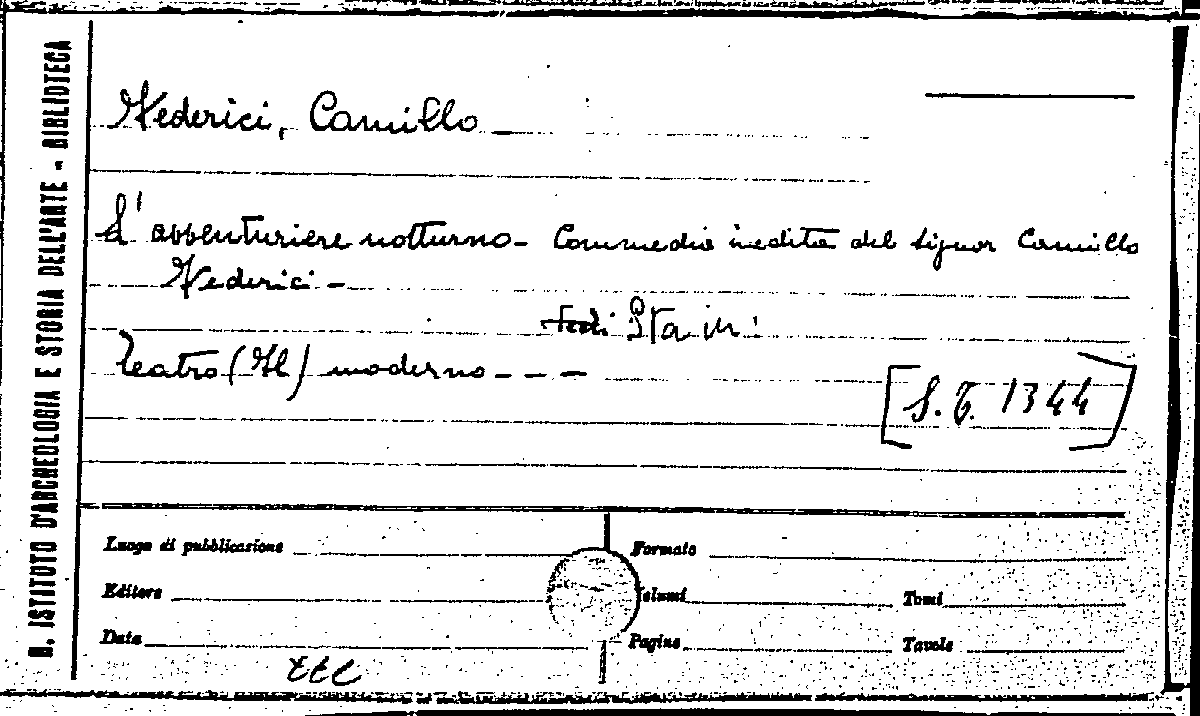 R. ISTITUTO D'ARCHEOLOGIA E STORIA DELL'ARTE - BIBLIOTECA
Federici, Camillo
L'avventuriere notturno - Commedia inedita del signor Camillo
Federici -
Sta in:
Teatro (Il) moderno - - -
[S. T. 1344]
Luogo di pubblicazione Formato
Editore Volumi Tomi
Data Pagine Tavole